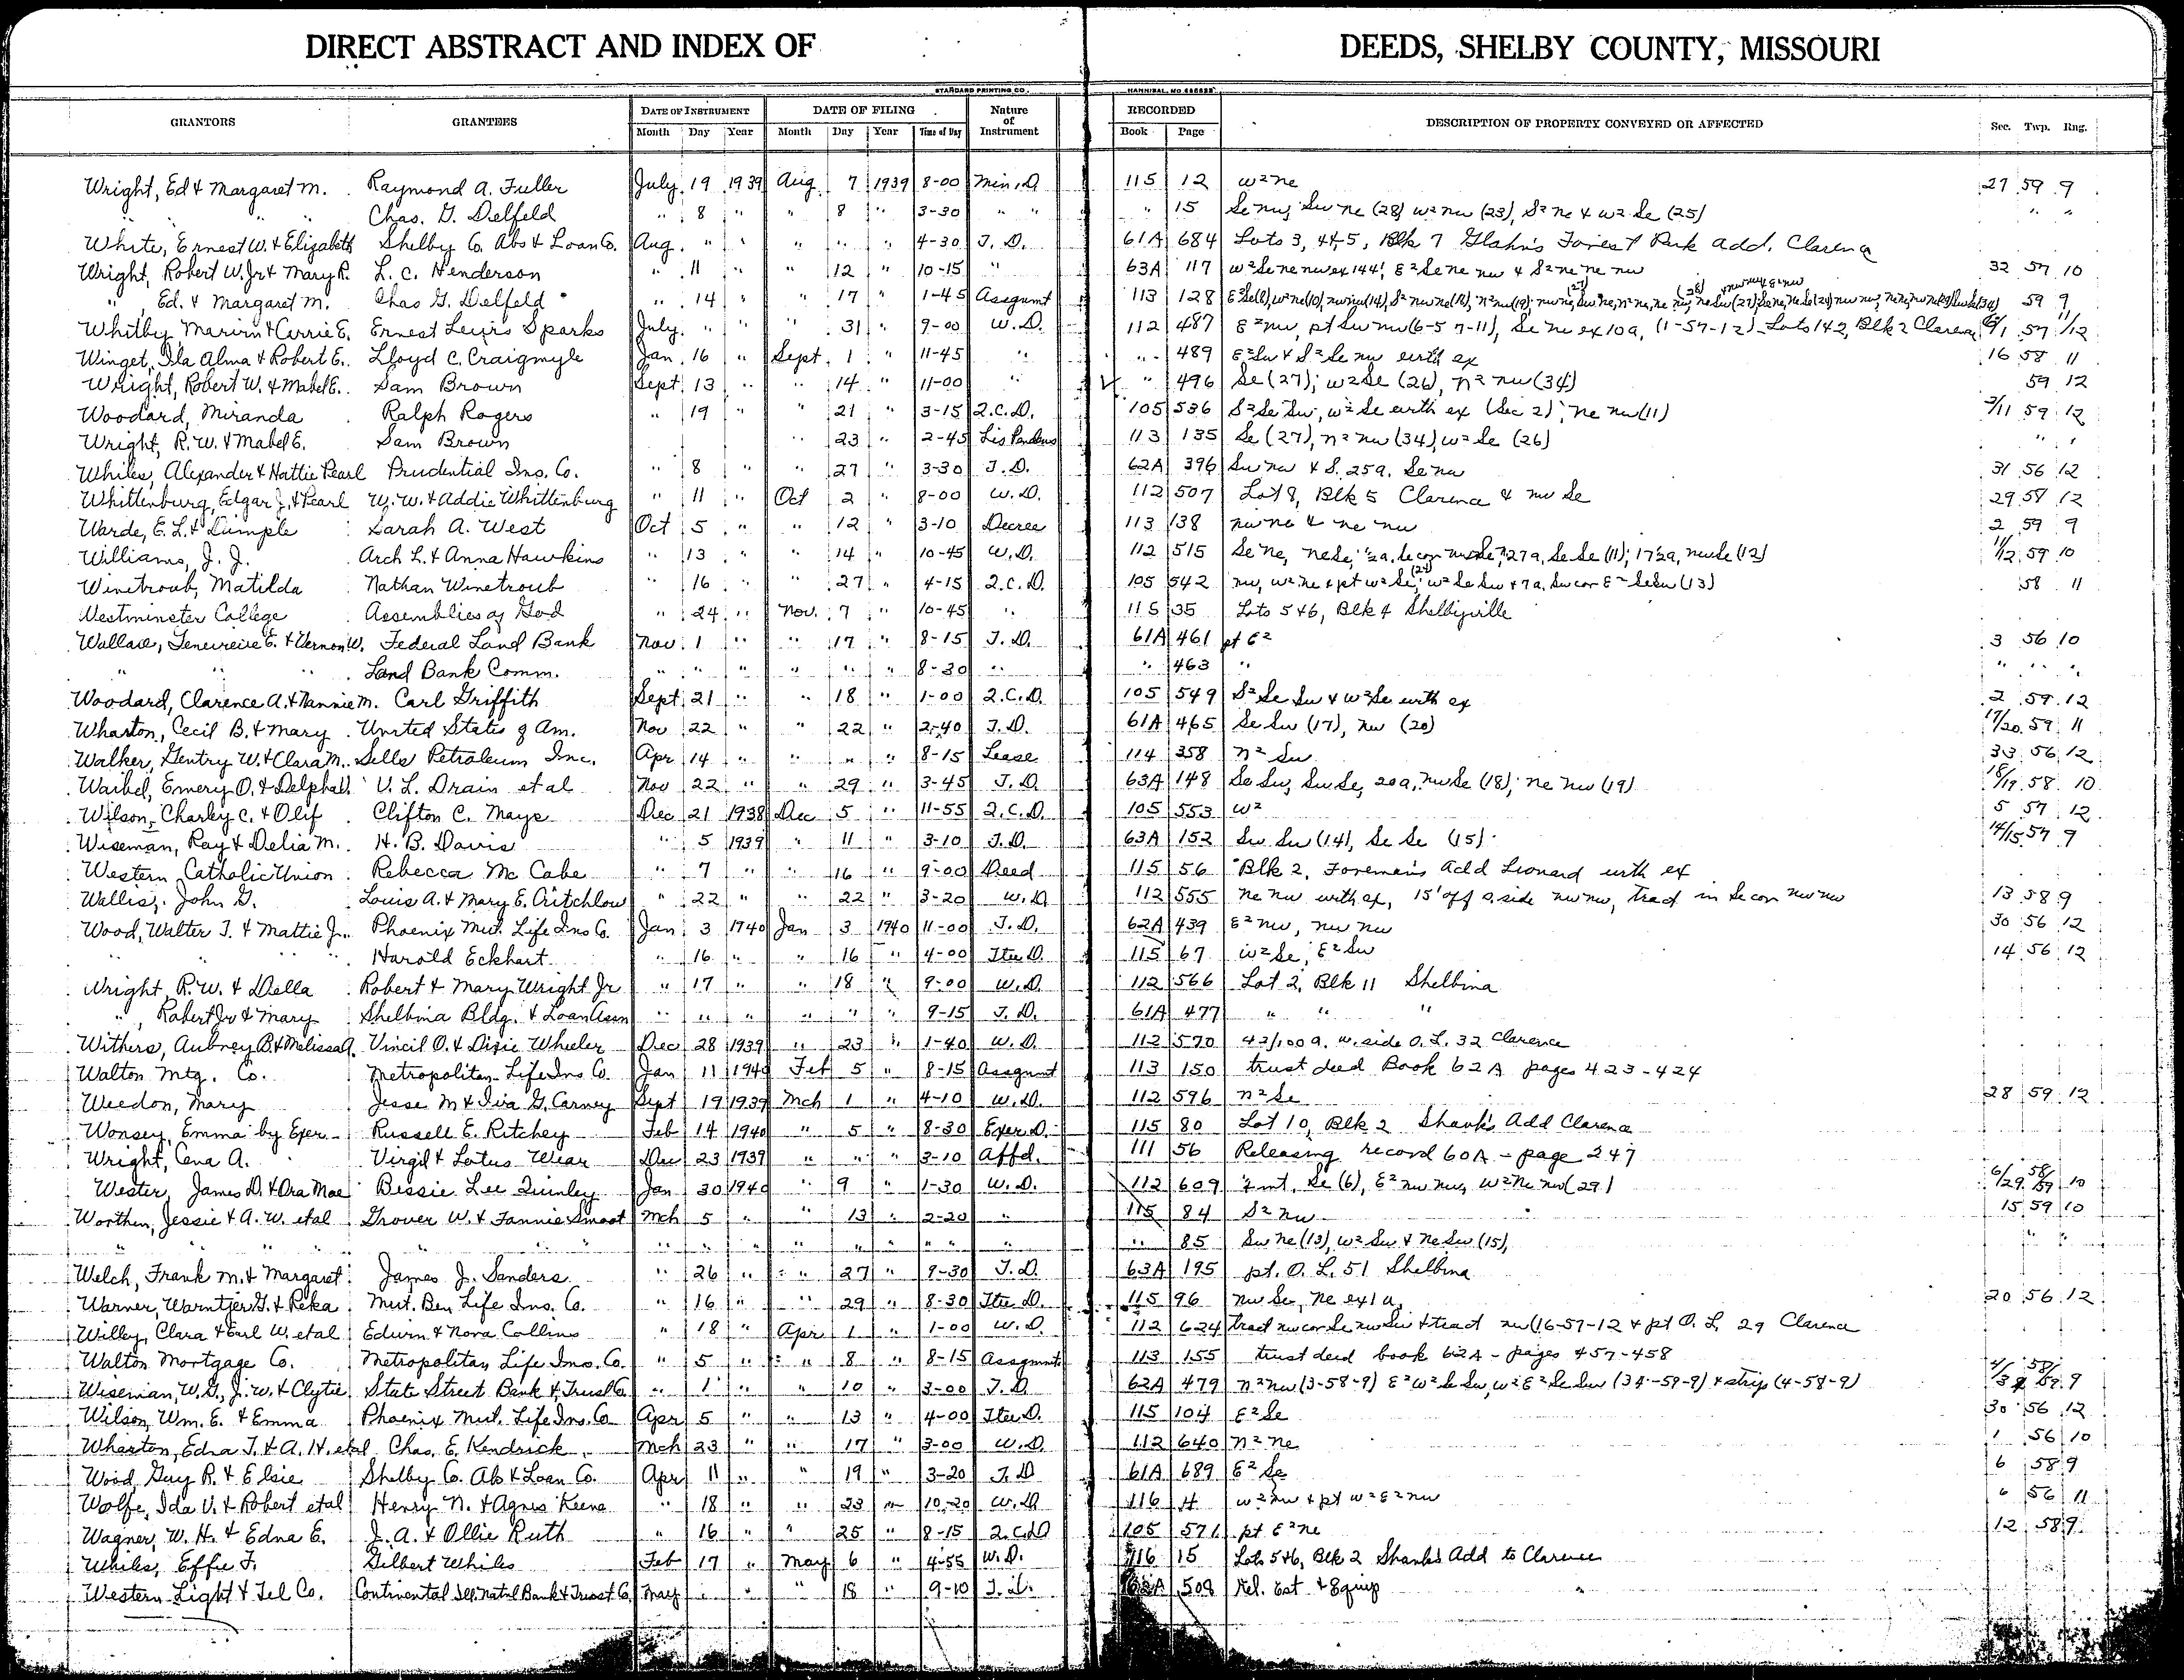 DIRECT ABSTRACT AND INDEX OF DEEDS, SHELBY COUNTY, MISSOURI
STANDARD PRINTING CO. HANNIBAL, MO.
GRANTORS GRANTEES DATE OF INSTRUMENT DATE OF FILING Nature of Instrument RECORDED DESCRIPTION OF PROPERTY CONVEYED OR AFFECTED Sec. Twp. Rng.
Month Day Year Month Day Year Time of Day Book Page
Wright, Ed & Margaret M. Raymond A. Fuller July 19 1939 Aug 7 1939 8-00 Min. D. 115 12 W² ne 27 59 9
" " " Chas. G. Delfeld " 8 " " 8 " 3-30 " " " 15 Se nw, Sw ne (28) w² nw (23), S² ne & w² Se (25) " "
White, Ernest W. & Elizabeth Shelby Co. Abs & Loan Co. Aug. " " " " " 4-30 T. D. 61A 684 Lots 3, 4+5, Blk 7 Glahn's Forest Park Add. Clarence
Wright, Robert W. Jr & Mary R. L. C. Henderson " 11 " " 12 " 10-15 " 63A 117 w² Se ne nw ex 144', E² Se ne nw & S² ne ne nw 32 57 10
" , Ed. & Margaret M. Chas G. Delfeld " 14 " " 17 " 1-45 Assgmt 113 128 59 9
Whitby Marvin & Carrie E. Ernest Lewis Sparks July " " " 31 " 9-00 W. D. 112 487 E² nw, pt Sw nw (6-57-11), Se ne ex 10a, (1-57-12) - Lots 1+2, Blk 2 Clarence 6/1 57 11/12
Winget, Ila Alma & Robert E. Lloyd C. Craigmyle Jan 16 " Sept. 1 " 11-45 " " 489 E² Sw & S² Se nw with ex 16 58 11
Wright, Robert W. & Mabel E. Sam Brown Sept 13 " " 14 " 11-00 " " 496 Se (27); w² Se (26), n² nw (34) 59 12
Woodard, Miranda Ralph Rogers " 19 " " 21 " 3-15 Q.C.D. 105 536 S² Se Sw, w² Se with ex (Sec 2); ne nw (11) 2/11 59 12
Wright, R. W. & Mabel E. Sam Brown " 23 " 2-45 Lis Pendens 113 135 Se (27), n² nw (34), w² Se (26) " "
Whiles, Alexander & Hattie Pearl Prudential Ins. Co. " 8 " " 27 " 3-30 T. D. 62A 396 Sw nw & S. 25a. Se nw 31 56 12
Whittenburg, Edgar J. & Pearl W. W. & Addie Whittenburg " 11 " Oct 2 " 8-00 W. D. 112 507 Lot 8, Blk 5 Clarence & nw Se 29 57 12
Warde, E. L. & Dimple Sarah A. West Oct 5 " " 12 " 3-10 Decree 113 138 nw ne & ne nw 2 59 9
Williams, J. J. Arch L. & Anna Hawkins " 13 " " 14 " 10-45 W. D. 112 515 Se ne, ne Se, ½a. Se cor nw Se, 27a, Se Se (11); 17½a, nw Se (12) 11/12 59 10
Winetroub, Matilda Nathan Winetroub " 16 " " 27 " 4-15 Q.C.D. 105 542 nw, w² ne & pt w² Se (24), w² Se Sw & 7a, Sw cor E² Se Sw (13) 58 11
Westminster College Assemblies of God " 24 " Nov. 7 " 10-45 " 115 35 Lots 5+6, Blk 4 Shelbyville
Wallace, E. & Vernon W. Federal Land Bank Nov 1 " " 17 " 8-15 T. D. 61A 461 pt E² 3 56 10
" " " Land Bank Comm. " " " " " " 8-30 " " 463 " " " "
Woodard, Clarence A. & Nannie M. Carl Griffith Sept 21 " " 18 " 1-00 Q.C.D. 105 549 S² Se Sw & w² Se with ex 2 59 12
Wharton, Cecil B. & Mary United States of Am. Nov 22 " " 22 " 2-40 T. D. 61A 465 Se Sw (17), nw (20) 17/20 59 11
Walker, Gentry W. & Clara M. Sells Petroleum Inc. Apr 14 " " " " 8-15 Lease 114 358 n² Sw 33 56 12
Waibel, Emery O. & Delpha V. L. Drain et al Nov 22 " " 29 " 3-45 T. D. 63A 148 Se Sw, Sw Se, 20a, nw Se (18); ne nw (19) 18/19 58 10
Wilson, Charley C. & Olif Clifton C. Mayes Dec 21 1938 Dec 5 " 11-55 Q.C.D. 105 553 W² 5 57 12
Wiseman, Ray & Delia M. H. B. Davis " 5 1939 " 11 " 3-10 T. D. 63A 152 Sw Sw (14), Se Se (15) 14/15 57 9
Western Catholic Union Rebecca McCabe " 7 " " 16 " 9-00 Deed 115 56 Blk 2, Foreman's Add Leonard with ex
Wallis, John G. Louis A. & Mary E. Critchlow " 22 " " 22 " 3-20 W. D. 112 555 ne nw with ex, 15' off S. side nw nw, tract in Se cor nw nw 13 58 9
Wood, Walter T. & Mattie J. Phoenix Mut. Life Ins Co. Jan 3 1940 Jan 3 1940 11-00 T. D. 62A 439 E² nw, nw nw 30 56 12
" " " Harold Eckhart " 16 " " 16 " 4-00 Ttee D. 115 67 w² Se, E² Sw 14 56 12
Wright, R. W. & Della Robert & Mary Wright Jr " 17 " " 18 " 9-00 W. D. 112 566 Lot 2, Blk 11 Shelbina
" , Robert Jr & Mary Shelbina Bldg. & Loan Assn " " " " " " 9-15 T. D. 61A 477 " " "
Withers, Aubrey B. & Melissa A. Vincil O. & Dixie Wheeler Dec 28 1939 " 23 " 1-40 W. D. 112 570 42/100 a. w. side O. L. 32 Clarence
Walton Mtg. Co. Metropolitan Life Ins Co. Jan 11 1940 Feb 5 " 8-15 Assgmnt 113 150 trust deed Book 62A pages 423-424
Weedon, Mary Jesse M & Iva G. Carney Sept 19 1939 Mch 1 " 4-10 W. D. 112 596 n² Se 28 59 12
Wonsey, Emma by Exer Russell E. Ritchey Feb 14 1940 " 5 " 8-30 Exer D. 115 80 Lot 10, Blk 2 Shank's Add Clarence
Wright, Cena A. Virgil & Lotus Wear Dec 23 1939 " " " 3-10 Affd. 111 56 Releasing record 60A - page 247
Wester, James D. & Ora Mae Bessie Lee Quinley Jan 30 1940 " 9 " 1-30 W. D. 112 609 int. Se (6), E² nw nw, w² ne nw (29) 6/29 58/59 10
Worthen, Jessie & A. W. etal Grover W. & Fannie Smoot Mch 5 " " 13 " 2-20 " 115 84 S² nw 15 59 10
" " " " " " " " " " " " 85 Sw ne (13), w² Sw & ne Sw (15), " "
Welch, Frank M. & Margaret James J. Sanders " 26 " " 27 " 9-30 T. D. 63A 195 pt. O. L. 51 Shelbina
Warner, Warntjer G. & Reka Mut. Ben Life Ins. Co. " 16 " " 29 " 8-30 Ttee D. 115 96 nw Se, ne ex 1a. 20 56 12
Willey, Clara & Earl W. etal Edwin & Nora Collins " 18 " Apr 1 " 1-00 W. D. 112 624 tract nw cor Se nw Sw & tract nw (16-57-12 & pt O. L. 29 Clarence
Walton Mortgage Co. Metropolitan Life Ins. Co. " 5 " " 8 " 8-15 Assgmnt 113 155 trust deed book 62A - pages 457-458
Wiseman, W. G., J. W. & Clytie State Street Bank & Trust Co " 1 " " 10 " 3-00 T. D. 62A 479 n² nw (3-58-9) E² w² Se Sw, w² E² Se Sw (34-59-9) & strip (4-58-9) 58/59 9
Wilson, Wm. E. & Emma Phoenix Mut. Life Ins. Co Apr 5 " " 13 " 4-00 Ttee D. 115 104 E² Se 30 56 12
Wharton, Edna T. & A. H. etal Chas. E. Kendrick Mch 23 " " 17 " 3-00 W. D. 112 640 n² ne 1 56 10
Wood, Guy R. & Elsie Shelby Co. Ab & Loan Co. Apr 11 " " 19 " 3-20 T. D 61A 689 E² Se 6 58 9
Wolfe, Ida V. & Robert etal Henry N. & Agnes Keene " 18 " " 23 " 10-20 W. D. 116 4 w² nw & pt w² E² nw 6 56 11
Wagner, W. H. & Edna E. J. A. & Ollie Ruth " 16 " " 25 " 8-15 Q.C.D 105 571 pt E² ne 12 58 9
Whiles, Effie F. Gilbert Whiles Feb 17 " May 6 " 4-55 W. D. 116 15 Lots 5+6, Blk 2 Shank's Add to Clarence
Western Light & Tel Co. Continental Ill. Natnl Bank & Trust Co May " " " 18 " 9-10 T. D. 509 Rel. Est & Equip